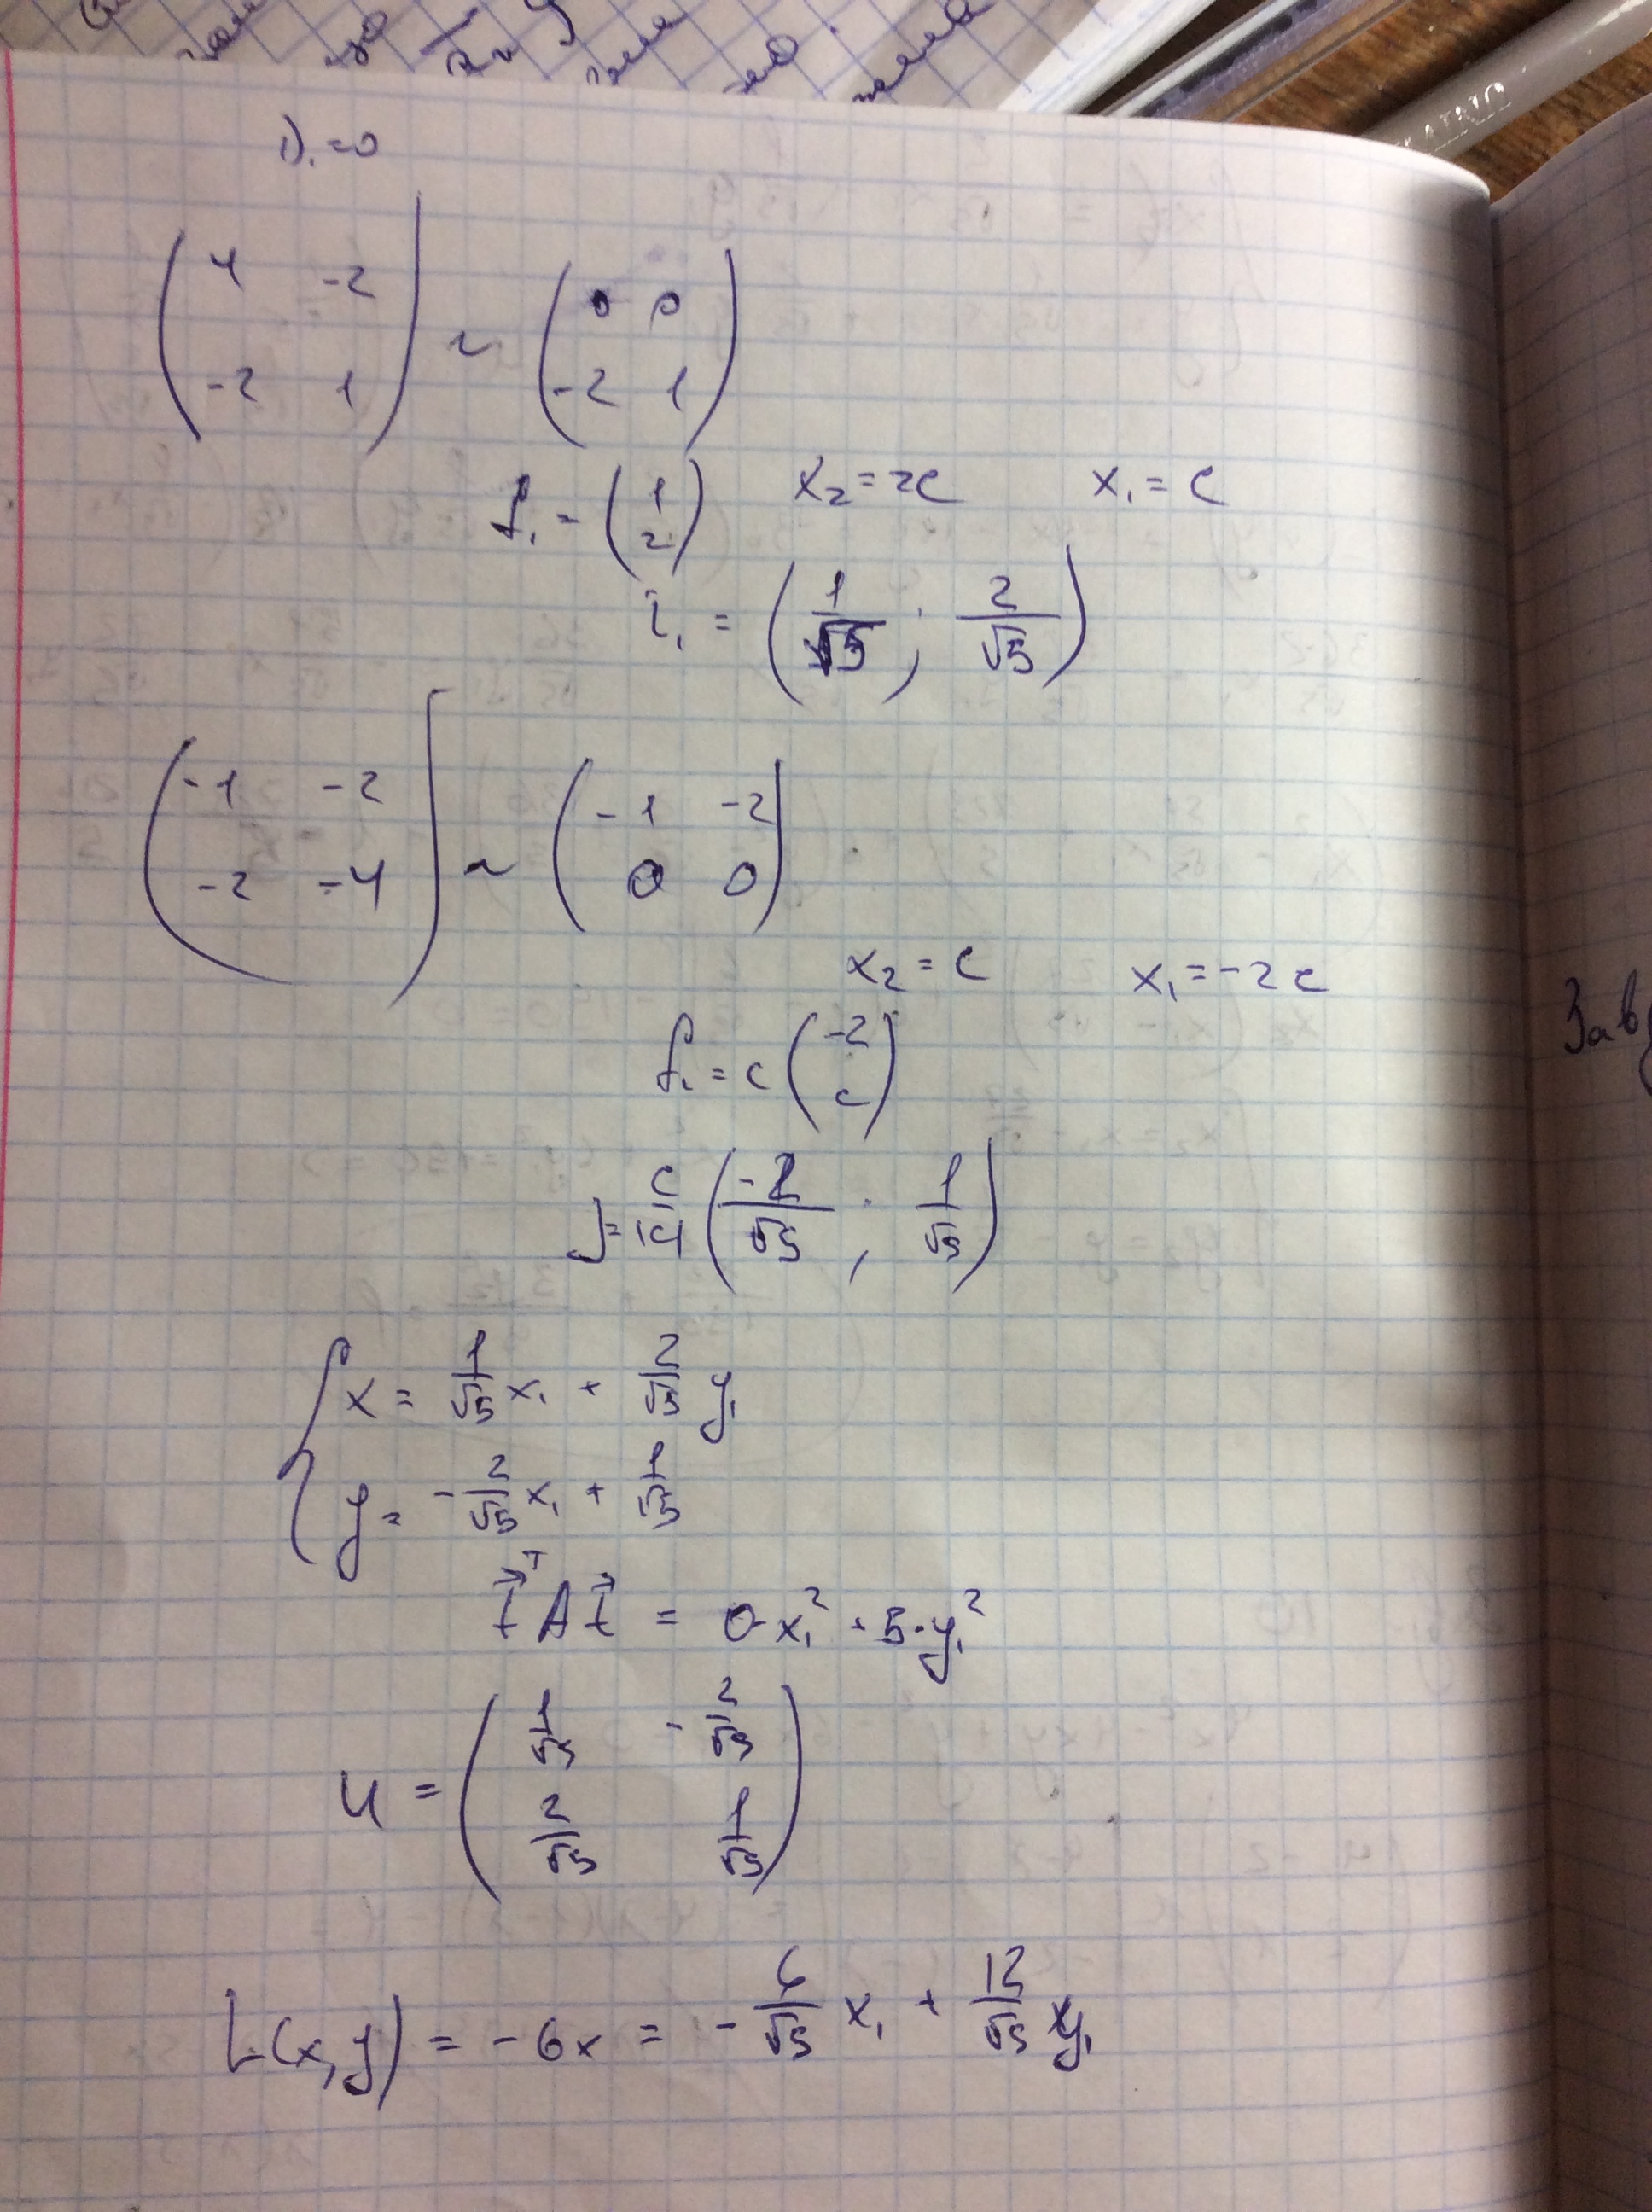 λ₁=0
( 4 -2 ; -2 1 ) ~ ( 0 0 ; -2 1 )
f₁ = ( 1 ; 2 ) x₂ = 2c x₁ = c
i₁ = ( 1/√5 ; 2/√5 )
( -1 -2 ; -2 -4 ) ~ ( -1 -2 ; 0 0 )
x₂ = c x₁ = -2c
f₁ = c ( -2 ; c )
j = c/|c| ( -2/√5 ; 1/√5 )
{ x = 1/√5 x₁ + 2/√5 y₁
y = -2/√5 x₁ + 1/√5
t⃗ᵀ A t⃗ = 0 x₁² + 5·y₁²
U = ( 1/√5 -2/√5 ; 2/√5 1/√5 )
L(x,y) = -6x = -6/√5 x₁ + 12/√5 y₁
Зав